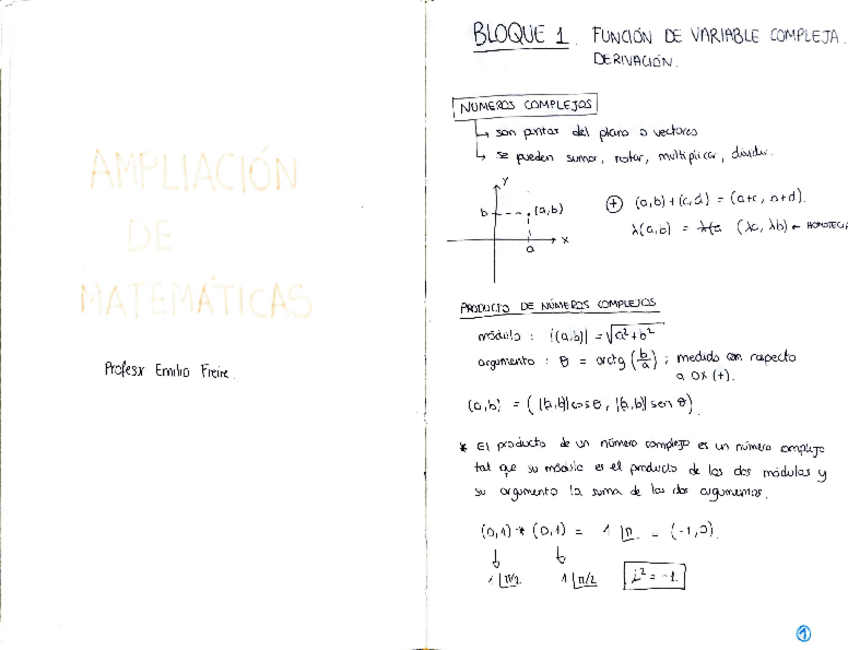 AMPLIACIÓN
DE
MATEMÁTICAS
Profesor Emilio Freire.
BLOQUE 1. FUNCIÓN DE VARIABLE COMPLEJA.
DERIVACIÓN.
NÚMEROS COMPLEJOS
↳ son puntos del plano o vectores
↳ se pueden sumar, restar, multiplicar, dividir.
y
b (a,b)
x
a
⊕ (a,b)+(c,d) = (a+c, b+d).
λ(a,b) = (λa, λb) ← HOMOTECIA
PRODUCTO DE NÚMEROS COMPLEJOS
módulo : |(a,b)| = √a²+b²
argumento : θ = arctg (b/a) ; medido con respecto
a OX (+).
(a,b) = (|(a,b)| cos θ, |(a,b)| sen θ)
* El producto de un número complejo es un número complejo
tal que su módulo es el producto de los dos módulos y
su argumento la suma de los dos argumentos.
(0,1) * (0,1) = 1 |π = (-1,0).
↓ ↓
1 |π/2 1 |π/2 i² = -1
1